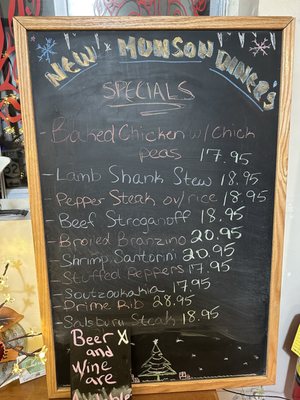 New Munson Diner's
SPECIALS
- Baked Chicken w/ Chick
peas 17.95
- Lamb Shank Stew 18.95
- Pepper Steak ov/ rice 18.95
- Beef Stroganoff 18.95
- Broiled Branzino 20.95
- Shrimp Santorini 20.95
- Stuffed Peppers 17.95
- Soutzoukakia 17.95
- Prime Rib 28.95
- Salsbury Steak 18.95
Beer
and
Wine
are